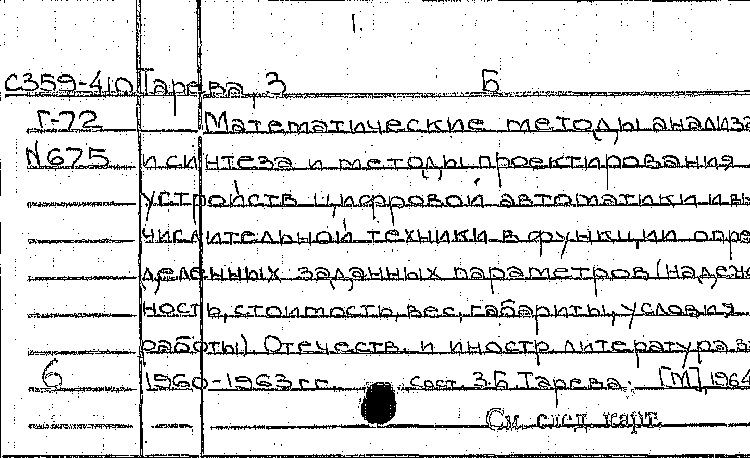 1.
С359-410 Тарева, З Б
Г-72 Математические методы анализа
N675 и синтеза и методы проектирования
устройств цифровой автоматики и вы
числительной техники в функции опре
деленных заданных параметров (надеж
ность, стоимость, вес, габариты, условия
работы). Отечеств. и иностр. литература за
6 1960-1963 г.г. сост. З.Б. Тарева. [М], 1964
См. след. карт.